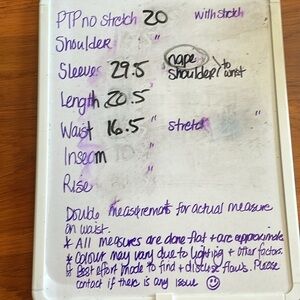 PTP no stretch 20 with stretch
Shoulder "
Sleeves 29.5 " nape shoulder to wrist
Length 20.5 "
Waist 16.5 " stretch "
Inseam "
Rise "
Double measurements for actual measure
on waist.
* All measures are done flat + are approximate
* Colour may vary due to lighting + other factors.
* Best effort made to find + disclose flaws. Please
contact if there is any issue ☺